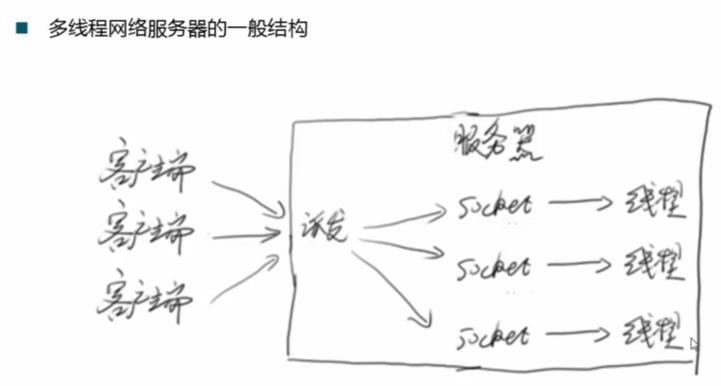 多线程网络服务器的一般结构
服务器
客户端
客户端
客户端
派发
socket 线程
socket 线程
socket 线程